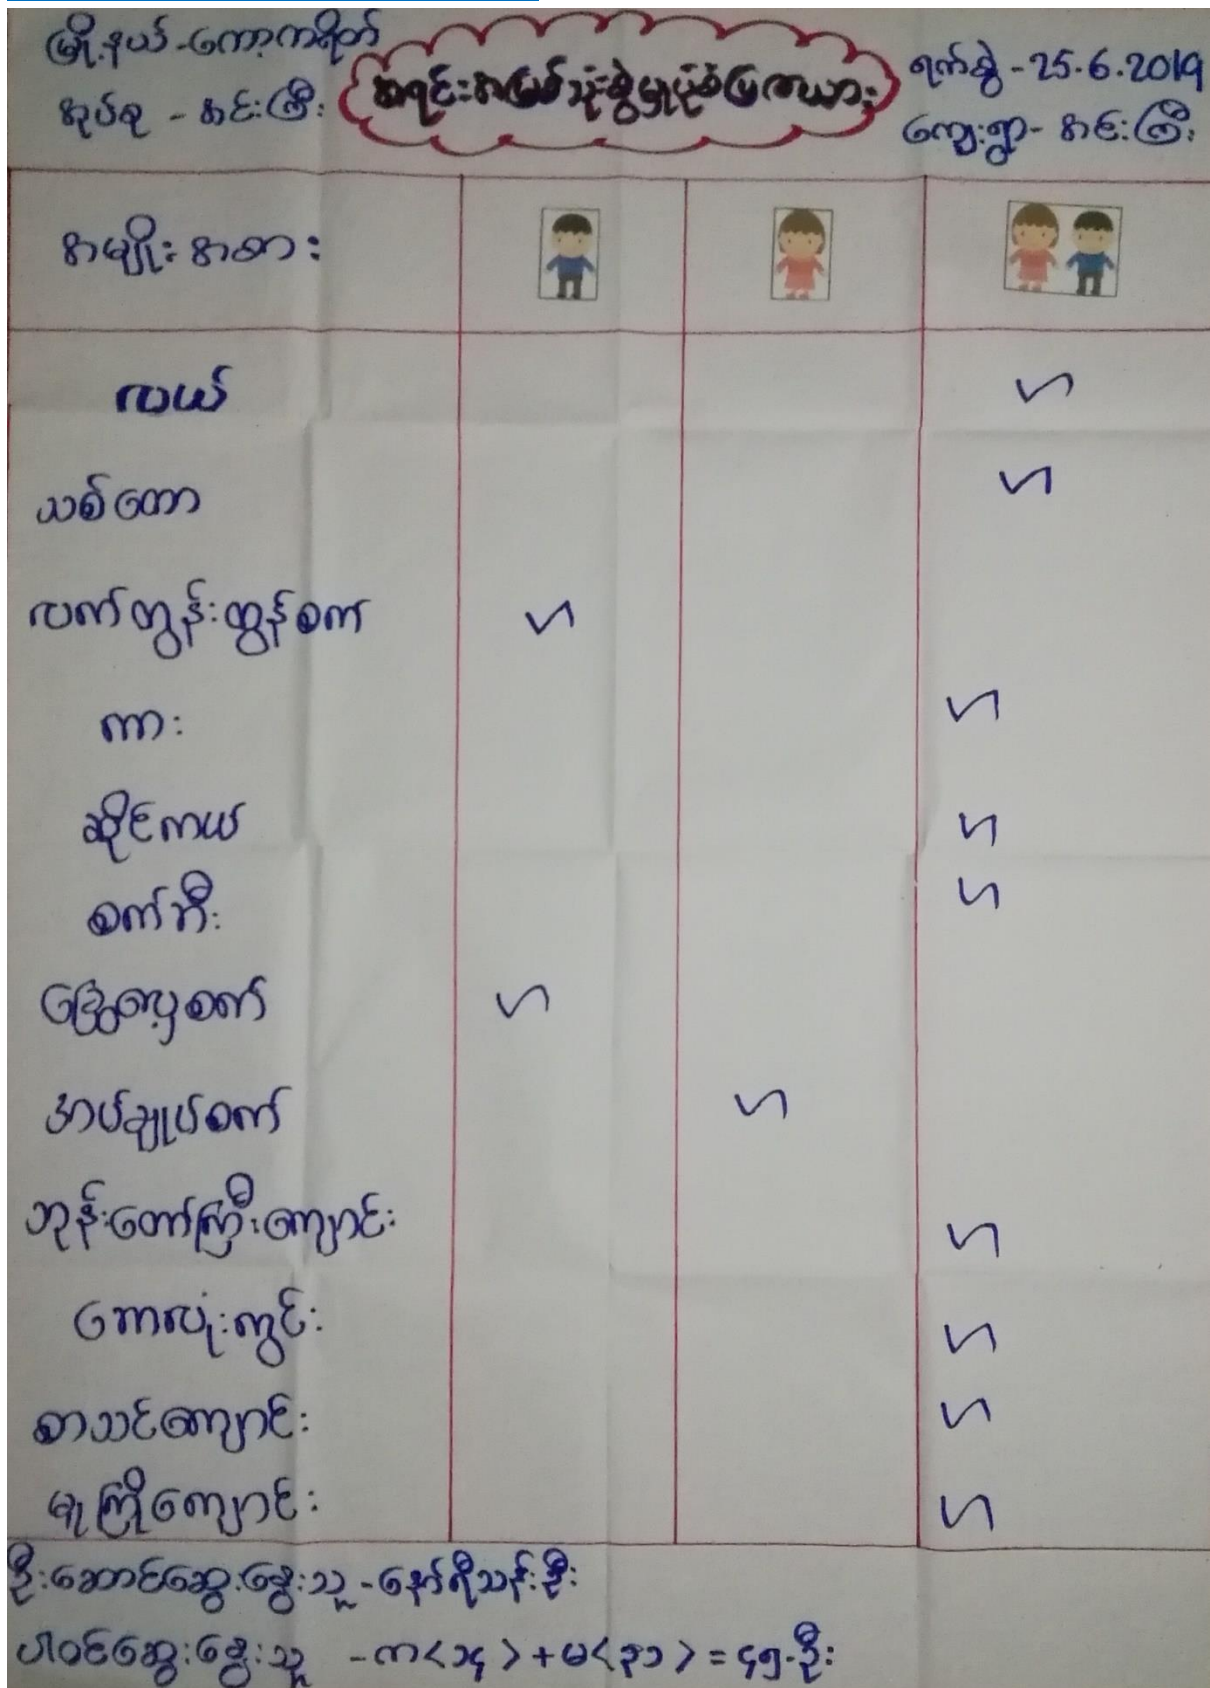 မြို့နယ် - ကော့ကရိတ်
အုပ်စု - အင်းကြီး
အရင်းအမြစ်သုံးစွဲမှုပုံစံပြဇယား
ရက်စွဲ - 25.6.2019
ကျေးရွာ - အင်းကြီး
အမျိုးအစား
လယ်
သစ်တော
လက်တွန်းထွန်စက်
ကား
ဆိုင်ကယ်
စက်ဘီး
ခြွေလှေ့စက်
အပ်ချုပ်စက်
ဘုန်းတော်ကြီးကျောင်း
ဘောလုံးကွင်း
စာသင်ကျောင်း
မူကြိုကျောင်း
ဦးဆောင်ဆွေးနွေးသူ - နော်ရီသန်းဦး
ပါဝင်ဆွေးနွေးသူ - က<၁၄> + မ<၃၁> = ၄၅-ဦး